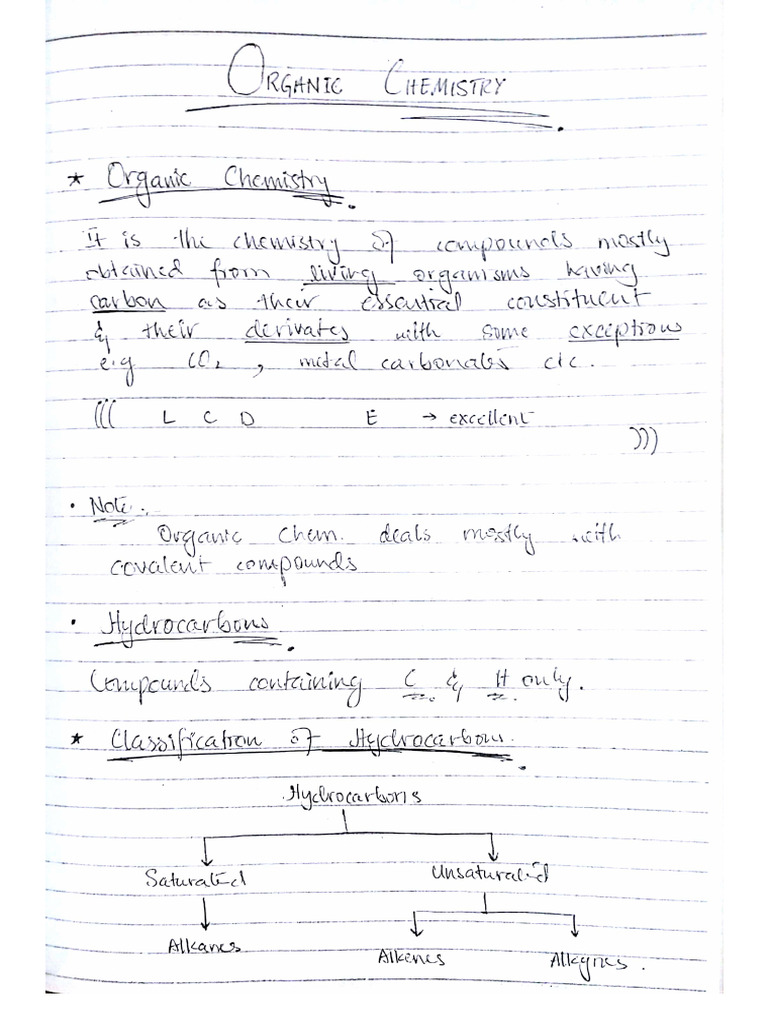 ORGANIC CHEMISTRY
* Organic Chemistry.
It is the chemistry of compounds mostly
obtained from living organisms having
carbon as their essential constituent
& their derivates with some exceptions
e.g CO₂, metal carbonates etc.
((( L C D E → excellent
)))
• Note:.
Organic Chem. deals mostly with
covalent compounds
• Hydrocarbons.
Compounds containing C & H only.
* Classification of Hydrocarbons.
Hydrocarbons
Saturated Unsaturated
Alkanes Alkenes Alkynes.